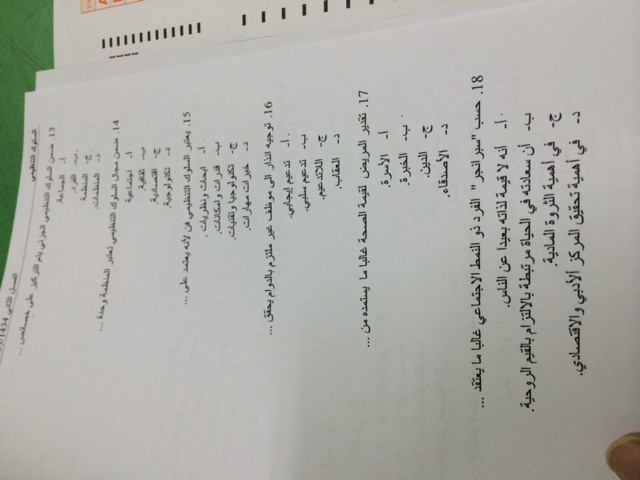 السلوك التنظيمي
الفصل الثاني 1434
13. ضمن السلوك التنظيمي الجزئي يتم التركيز على خصائص ...
أ- الجماعة.
ب- الفرد.
ج- المنظمة.
د- المنظمات.
14. ضمن مجال السلوك التنظيمي تعتبر المنظمة وحدة ...
أ- اجتماعية.
ب- ثقافية.
ج- اقتصادية.
د- تكنولوجية.
15. يعتبر السلوك التنظيمي فن لأنه يعتمد على ...
أ- ابحاث ونظريات.
ب- قدرات وامكانات.
ج- تكنولوجيا وتقنيات.
د- خبرات مهارات.
16. توجيه انذار الى موظف غير ملتزم بالدوام يحقق ...
أ- تدعيم إيجابي.
ب- تدعيم سلبي.
ج- اللاتدعيم.
د- العقاب.
17. تقدير المريض لقيمة الصحة غالبا ما يستمده من ...
أ- الأسرة.
ب- الخبرة.
ج- الدين.
د- الأصدقاء.
18. حسب "سبرانجر" الفرد ذو النمط الاجتماعي غالبا ما يعتقد ...
أ- أنه لا قيمة لذاته بعيدا عن الناس.
ب- أن سعادته في الحياة مرتبطة بالالتزام بالقيم الروحية.
ج- في أهمية الثروة المادية.
د- في أهمية تحقيق المركز الأدبي والاقتصادي.